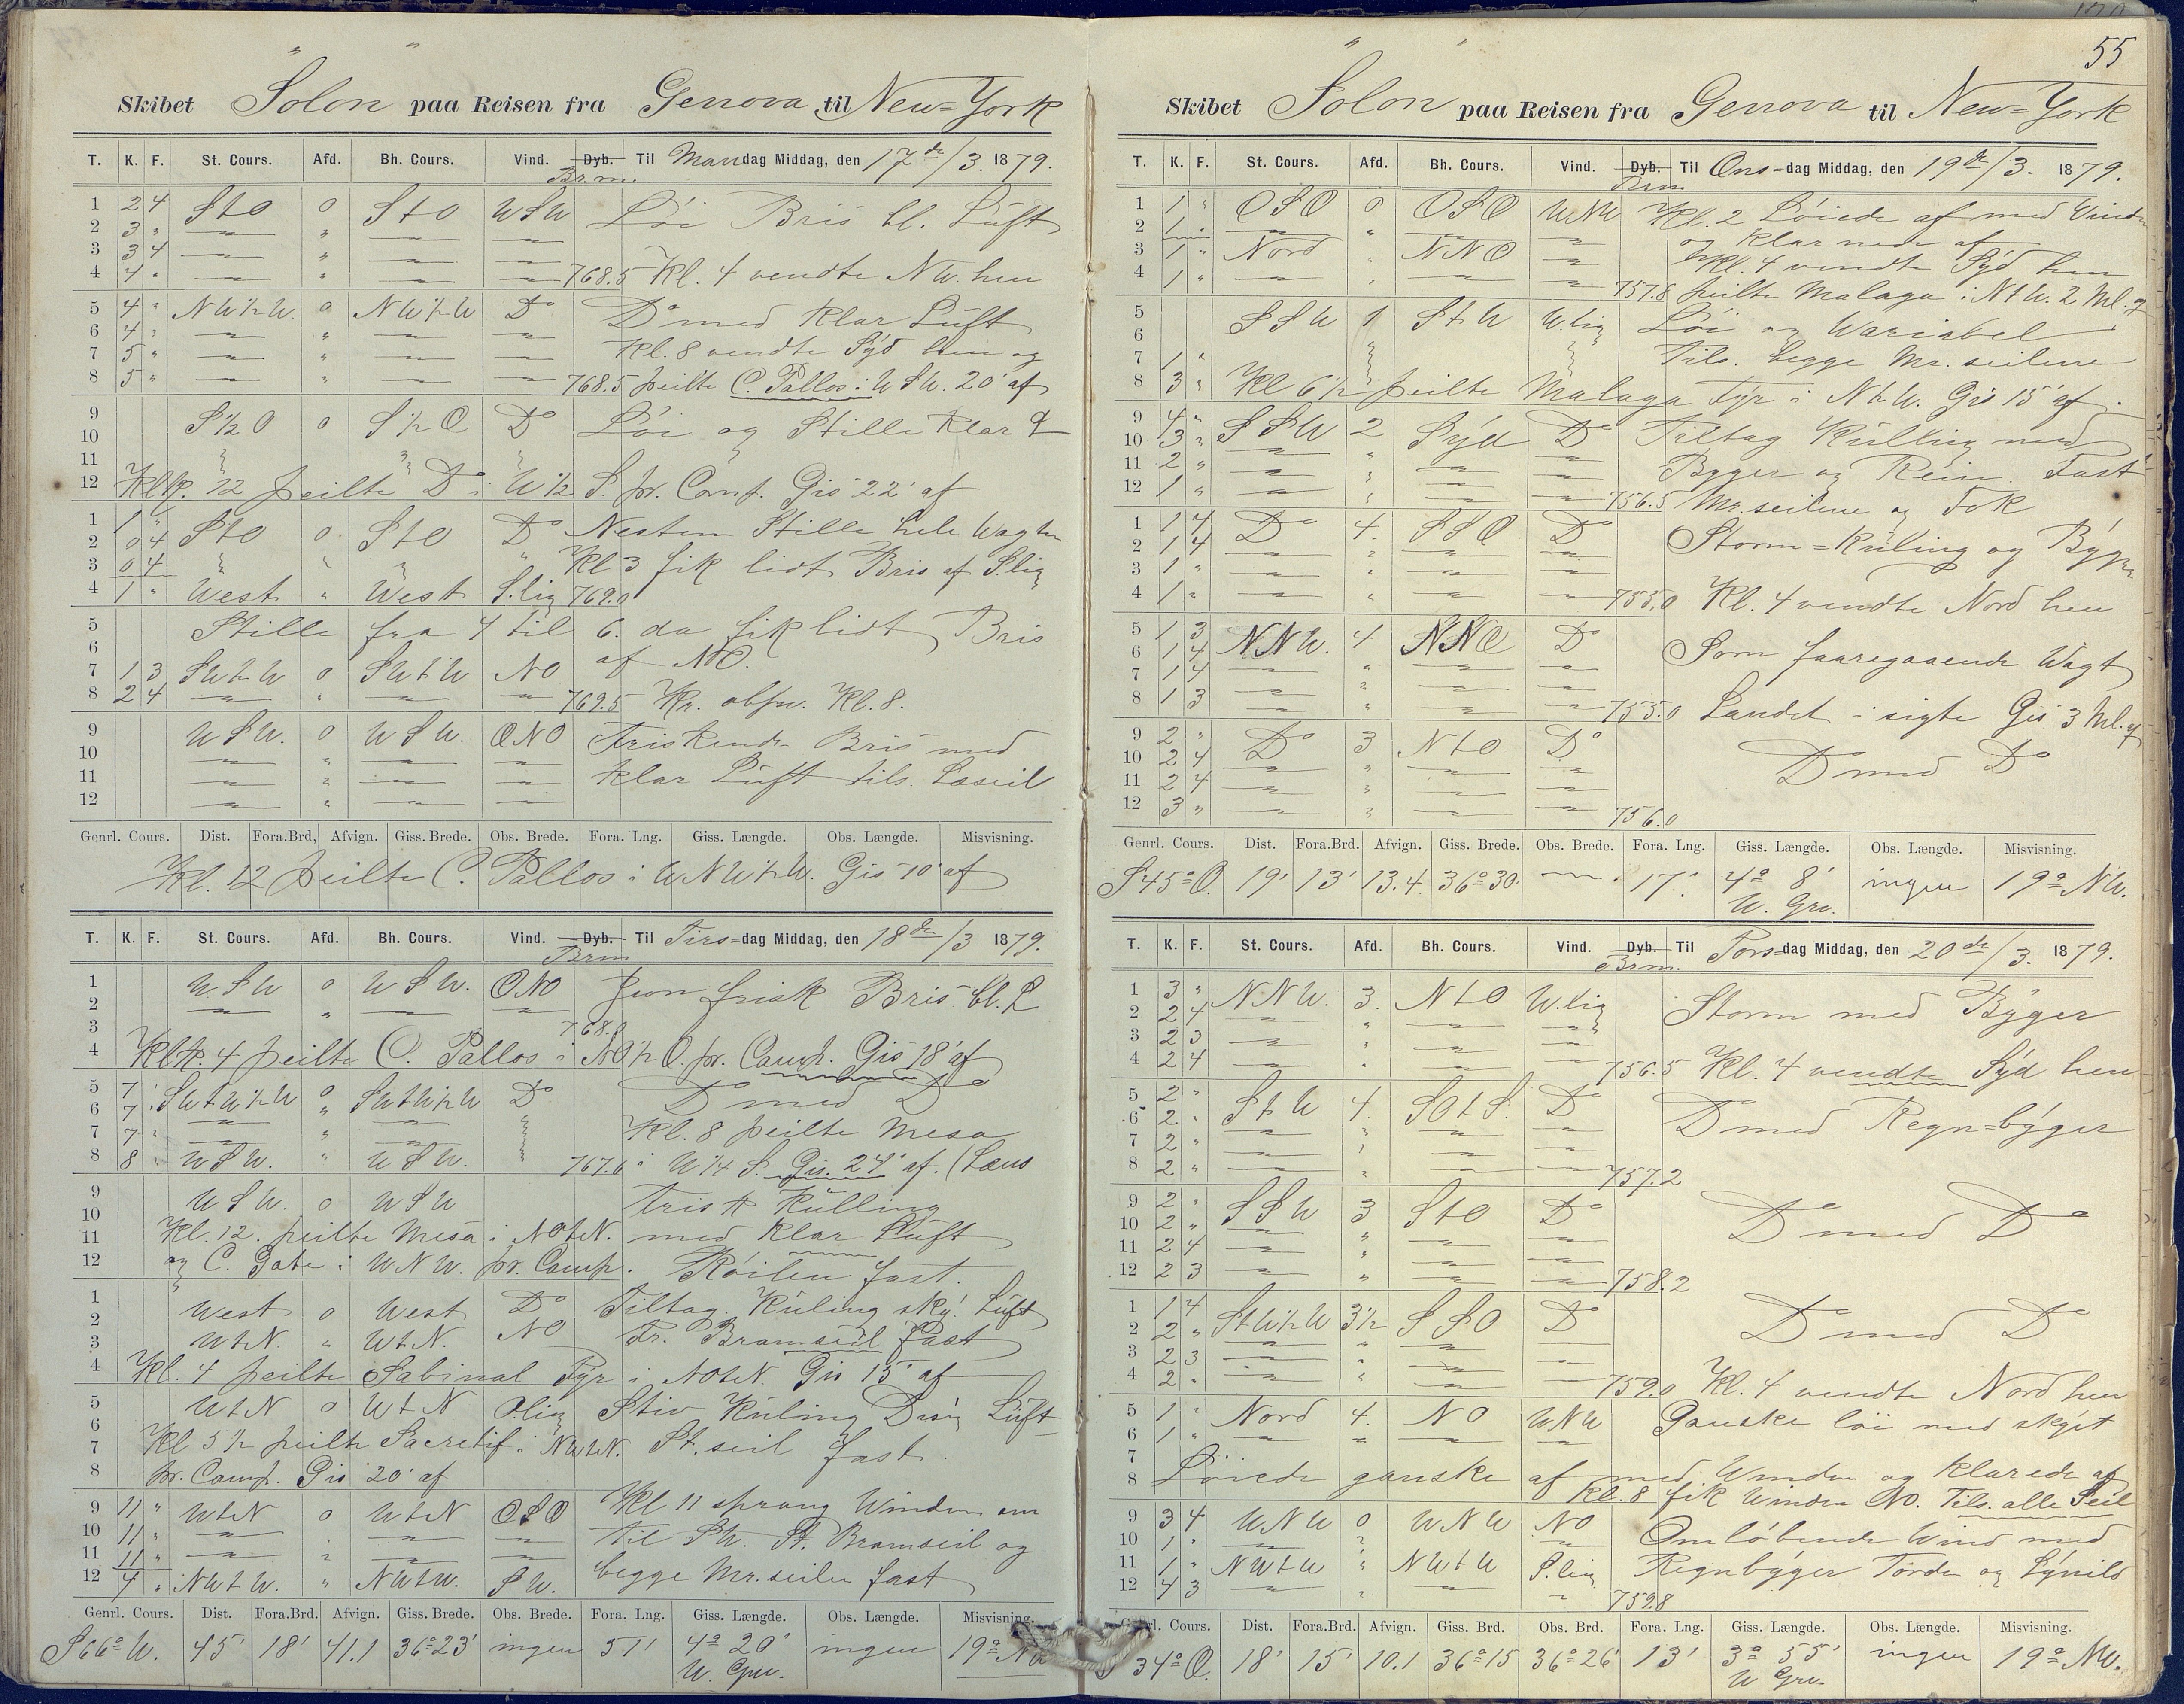 Skibet "Solon" paa Reisen fra Genova til New=York
T. K. F. St. Cours. Afd. Bh. Cours. Vind. Dyb. Brm. Til Mandag Middag, den 17de/3. 1879.
1 2 4 StO 0 StO WSW Löi Bris bl. Luft
2 3 "
3 3 4
4 4 " 768.5 Kl. 4 vendte NW. hen
5 4 " NW½W. 0 NW½W Do Do med Klar Luft
6 4 "
7 5 " Kl. 8 vendte Syd hen og
8 5 " 768.5 peilte C. Pallos i WSW. 20' af
9 S½O 0 S½O Do Löi og Stille Klar L
10
11
12 Kl. 12 peilte Do i W½S. pr. Comp. Gis 22' af
1 1 " StO 0 StO Do Nesten Stille hele Wagten
2 0 4
3 0 4 Kl 3 fik lidt Bris af S.lig
4 1 " West " West S.lig 769.0
5 Stille fra 4 til 6. da fik lidt Bris
6 af NO.
7 1 3 SWtW 0 SWtW NO
8 2 4 769.5 Kr. obsv. Kl. 8.
9 WSW. 0 WSW. ONO Friskende Bris med
10
11 klar Luft tils. Læseil
12
Genrl. Cours. Dist. Fora.Brd. Afvign. Giss. Brede. Obs. Brede. Fora. Lng. Giss. Længde. Obs. Længde. Misvisning.
Kl. 12 peilte C. Pallos i WNW½W. Gis 10' af
T. K. F. St. Cours. Afd. Bh. Cours. Vind. Dyb. Brm Til Tirs=dag Middag, den 18de/3 1879.
1 WSW 0 WSW. ONO Jevn frisk Bris bl. L
2
3 768.0
4 Kl. 4 peilte C. Pallos i NO½O. pr. Comp. Gis 18' af
5 7 " SWtW½W 0 SWtW½W Do Do med Do
6 7 "
7 7 " Kl. 8 peilte Mesa
8 8 " WSW. " WSW. 767.6 i W¼S. Gis. 24' af. (Læns
9 WSW. 0 WSW Frisk Kulling
10
11 Kl. 12. peilte Mesa i NOtN. med Klar Luft
12 og C. Gata i WNW. pr. Comp. Röilen fast.
1 West 0 West Do Tiltag. Kuling sky! Luft
2
3 WtN. " WtN. NO Fr. Bramseil fast
4 Kl. 4 peilte Sabinal Fyr i NOtN. Gis 15' af
5 WtN 0 WtN O.lig Stiv Kuling Disig Luft
6
7 Kl 5½ peilte Sacretif i NWtN. St.seil fast.
8 pr. Comp. Gis 20' af
9 11 " WtN 0 WtN OSO Kl 11 sprang Winden om
10 11 " til SW. St. Bramseil og
11 11 " begge Mr.seilen fast
12 4 " NWtW. " NWtW. SW.
Genrl. Cours. Dist. Fora.Brd. Afvign. Giss. Brede. Obs. Brede. Fora. Lng. Giss. Længde. Obs. Længde. Misvisning.
S66°W. 45' 18' 41.1 36°23' ingen 51' 4° 20' ingen 19° NW
W. Grw.
55
Skibet "Solon" paa Reisen fra Genova til New=York
T. K. F. St. Cours. Afd. Bh. Cours. Vind. Dyb. Brm Til Ons=dag Middag, den 19de/3. 1879.
1 1 " OSO 0 OSO WNW Kl. 2 Löiede af med Vinden
2 1 " og klarnede af
3 1 " Nord " NNO Kl. 4 vendte Syd hen
4 1 " 757.8 peilte Malaga i NtW. 2 Ml. af
5 SSW 1 StW W.lig Löi og Wariabel
6
7 1 " Tils. begge Mr. seilene
8 3 " Kl 6½ peilte Malaga Fyr i NtW. Gis 15' af.
9 4 " SSW 2 Syd Do Tiltag Kulling med
10 3 "
11 2 " Byger og Rein. Fast
12 1 " 756.5 Mr.seilene og Fok
1 1 4 Do 4. SSO Do Storm=Kuling og Byger
2 1 4
3 1 "
4 1 " 755.0 Kl. 4 vendte Nord hen
5 1 3 NNW. 4 NNO Do Som foaregaaende Wagt
6 1 4
7 1 4
8 1 3 755.0 Landet i sigte Gis 3 Ml. af
9 2 " Do 3 NtO Do Do med Do
10 2 4
11 2 4
12 3 " 756.0
Genrl. Cours. Dist. Fora.Brd. Afvign. Giss. Brede. Obs. Brede. Fora. Lng. Giss. Længde. Obs. Længde. Misvisning.
S45°O. 19' 13' 13.4. 36°30' 17' 4° 8' ingen 19° NW.
W. Grw.
T. K. F. St. Cours. Afd. Bh. Cours. Vind. Dyb. Brm. Til Tors=dag Middag, den 20de/3. 1879.
1 3 " NNW. 3. NtO W.lig Storm med Byger
2 2 4
3 2 3
4 2 4 756.5 Kl. 4 vendte Syd hen
5 2 " StW 4. SOtS. Do Do med Regn=byger
6 2 "
7 2 "
8 2 " 757.2
9 2 " SSW 3 StO Do Do med Do
10 2 "
11 2 4
12 2 3 758.2
1 1 4 StW½W 3½ SSO Do Do med Do
2 2 "
3 2 3
4 2 " 759.0 Kl. 4 vendte Nord hen
5 1 " Nord 4. NO WNW Ganske löi med skyet
6 1 "
7 Löiede ganske af med Winden og klarede af
8 Kl. 8 fik Winden NO. Tils. alle Seil
9 3 4 WNW 0 WNW NO Omlöbende Wind med
10 1 "
11 1 " NWtW " NWtW S.lig Regnbyger Torden og Lynild
12 4 3 759.8
Genrl. Cours. Dist. Fora.Brd. Afvign. Giss. Brd. Obs. Brd. Fora. Lng. Giss. Længde. Obs. Længde. Misvisning.
34°O. 18' 15' 10.1 36°15 36°26' 13' 3° 55' ingen 19° NW.
W Grw.